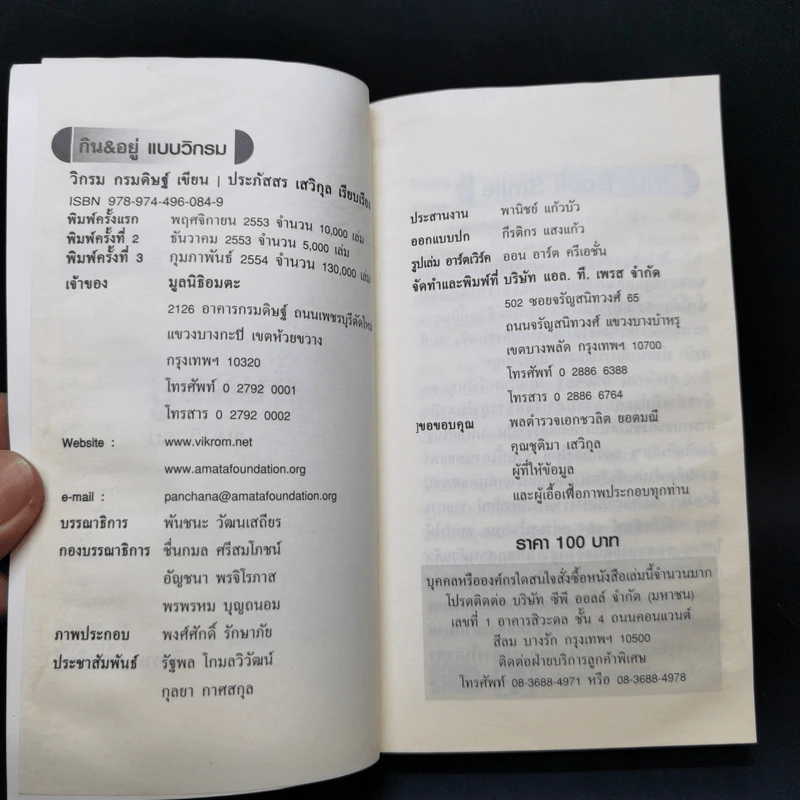 กิน&อยู่ แบบวิกรม
วิกรม กรมดิษฐ์ เขียน | ประภัสสร เสวิกุล เรียบเรียง
ISBN 978-974-496-084-9
พิมพ์ครั้งแรก พฤศจิกายน 2553 จำนวน 10,000 เล่ม
พิมพ์ครั้งที่ 2 ธันวาคม 2553 จำนวน 5,000 เล่ม
พิมพ์ครั้งที่ 3 กุมภาพันธ์ 2554 จำนวน 130,000 เล่ม
เจ้าของ มูลนิธิอมตะ
2126 อาคารกรมดิษฐ์ ถนนเพชรบุรีตัดใหม่
แขวงบางกะปิ เขตห้วยขวาง
กรุงเทพฯ 10320
โทรศัพท์ 0 2792 0001
โทรสาร 0 2792 0002
Website : www.vikrom.net
www.amatafoundation.org
e-mail : panchana@amatafoundation.org
บรรณาธิการ พันชนะ วัฒนเสถียร
กองบรรณาธิการ ชื่นกมล ศรีสมโภชน์
อัญชนา พรจิโรภาส
พรพรหม บุญถนอม
ภาพประกอบ พงศ์ศักดิ์ รักษาภัย
ประชาสัมพันธ์ รัฐพล โกมลวิวัฒน์
กุลยา กาศสกุล
ประสานงาน พานิชย์ แก้วบัว
ออกแบบปก กีรติกร แสงแก้ว
รูปเล่ม อาร์ตเวิร์ค ออน อาร์ต ครีเอชั่น
จัดทำและพิมพ์ที่ บริษัท แอล. ที. เพรส จำกัด
502 ซอยจรัญสนิทวงศ์ 65
ถนนจรัญสนิทวงศ์ แขวงบางบำหรุ
เขตบางพลัด กรุงเทพฯ 10700
โทรศัพท์ 0 2886 6388
โทรสาร 0 2886 6764
ขอขอบคุณ พลตำรวจเอกชวลิต ยอดมณี
คุณชุติมา เสวิกุล
ผู้ที่ให้ข้อมูล
และผู้เอื้อเฟื้อภาพประกอบทุกท่าน
ราคา 100 บาท
บุคคลหรือองค์กรใดสนใจสั่งซื้อหนังสือเล่มนี้จำนวนมาก
โปรดติดต่อ บริษัท ซีพี ออลล์ จำกัด (มหาชน)
เลขที่ 1 อาคารสิวะดล ชั้น 4 ถนนคอนแวนต์
สีลม บางรัก กรุงเทพฯ 10500
ติดต่อฝ่ายบริการลูกค้าพิเศษ
โทรศัพท์ 08-3688-4971 หรือ 08-3688-4978